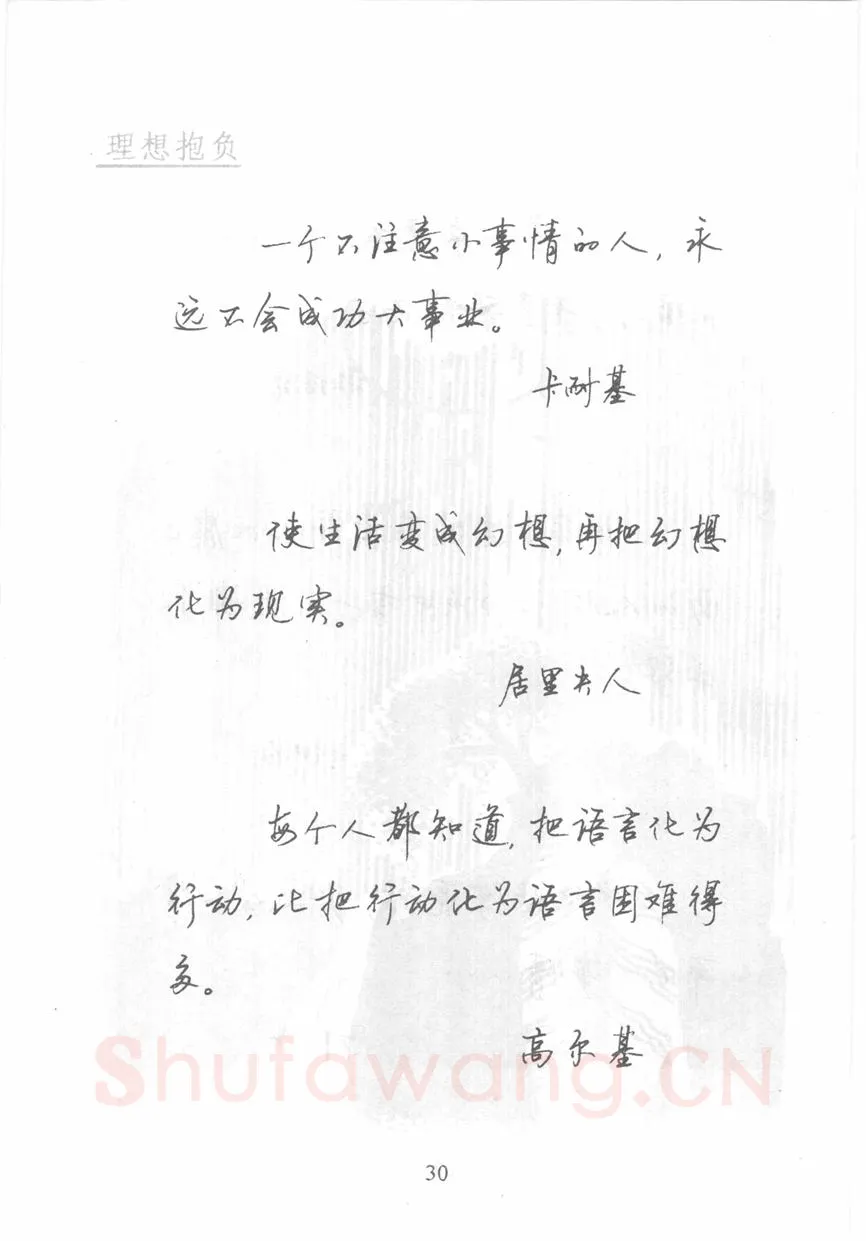 理想抱负
一个不注意小事情的人，永
远不会成功大事业。
卡耐基
使生活变成幻想，再把幻想
化为现实。
居里夫人
每个人都知道，把语言化为
行动，比把行动化为语言困难得
多。
高尔基
Shufawang.CN
30